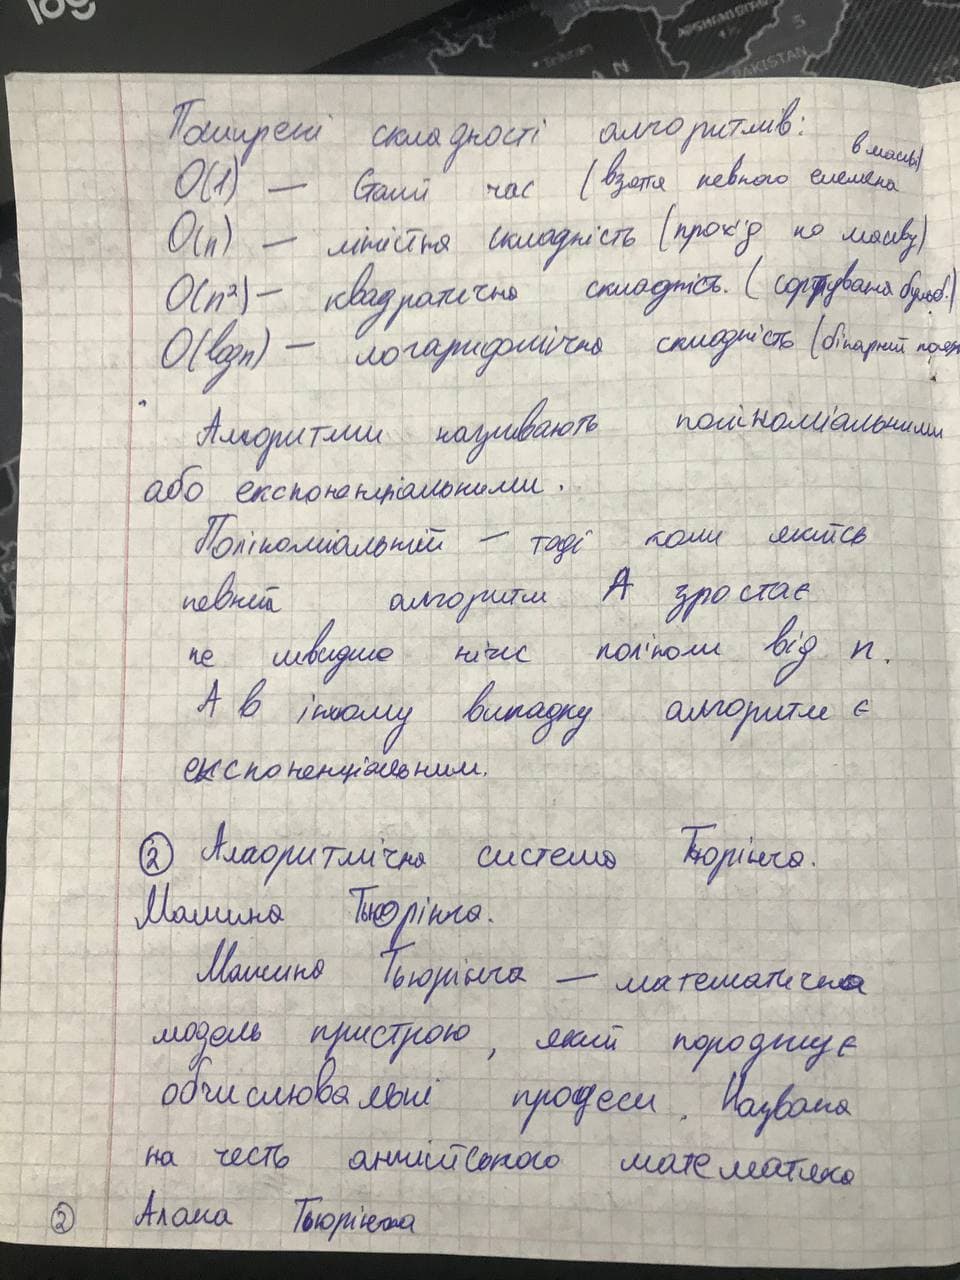 log
AFGHANISTAN
Tehran
PAKISTAN
Поширені складності алгоритмів:
O(1) — Сталий час (взяття певного елемена в масиві)
O(n) — лінійна складність (прохід по масиву)
O(n²) — квадратична складність. (сортування бульб.)
O(log n) — логарифмічна складність (бінарний пошук
Алгоритми називають поліноміальними
або експоненціальними.
Поліноміальний — тоді коли якийсь
певний алгоритм A зростає
не швидше ніж поліном від n.
А в іншому випадку алгоритм є
експоненціальним.
② Алгоритмічна система Тьюрінга.
Машина Тьюрінга.
Машина Тьюрінга — математична
модель пристрою, який породжує
обчислювальні процеси. Названа
на честь англійського математика
② Алана Тьюрінга